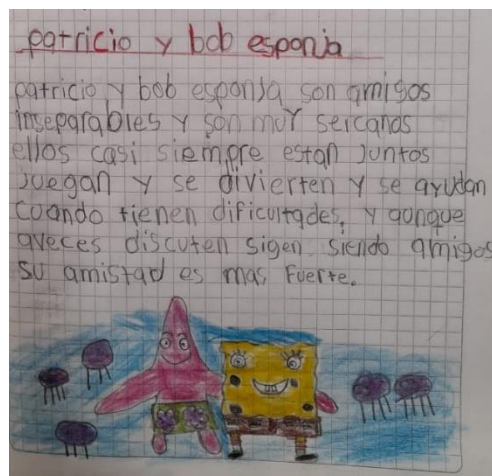 patricio y bob esponja
patricio y bob esponja son amigos
inseparables y son muy sercanos
ellos casi siempre estan juntos
juegan y se divierten y se ayudan
cuando tienen dificultades, y aunque
aveces discuten sigen siendo amigos
su amistad es mas fuerte.